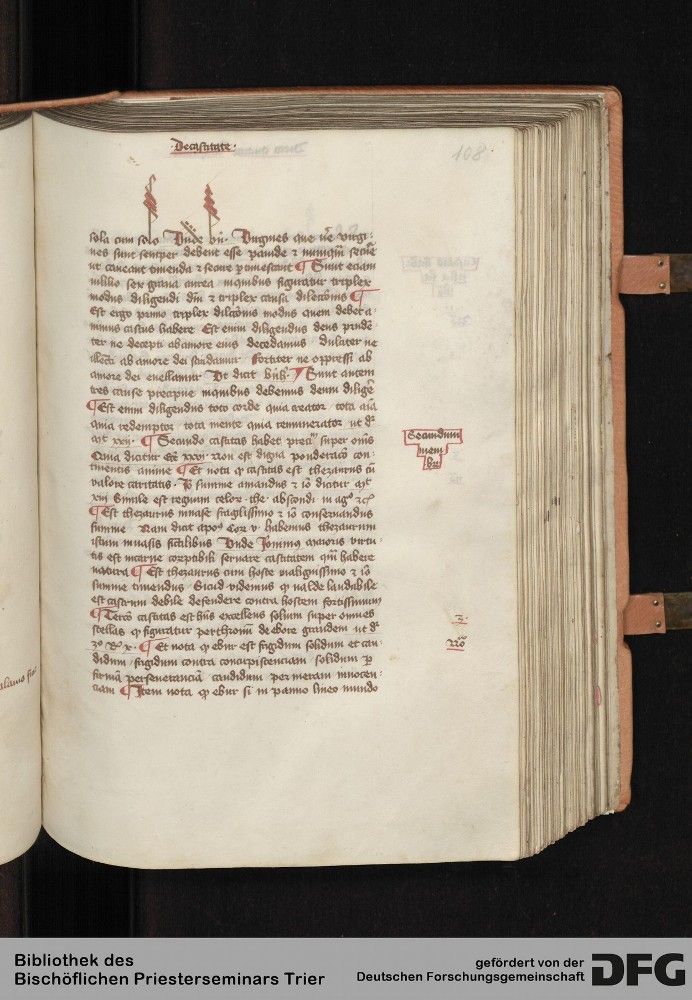 Decastitate
108
sola cum solo Unde bn̄. Virgines que ve᷑ virgi⸗
nes sunt semper debent esse pauide ⁊ nunquā secu᷑e
ut caueant timenda ⁊ secure ptimescant ¶ Sunt eciam
in lilio sex grana aurea in quibus figuratur triplex
modus diligendi dm̄ ⁊ triplex causa dilecōnis ¶
Est ergo primo triplex dilcōnis modus quem debet a⸗
nimus castus habere Est enim diligendus deus prudē⸗
ter ne decepti ab amore eius decedamus dulciter ne
illecti ab amore dei scindamur fortiter ne oppressi ab
amore dei euellamur Ut dicit bn̄h. ¶ Sunt autem
tres cause precipue in quibus debemus deum diligē
¶ Est enim diligendus toto corde quia creator tota aīa
quia redemptor tota mente quia remunerator ut dr̄
xxij. ¶ Secundo castitas habet preciū super om̄s
Quia dicitur xxvj non est digna ponderacō con⸗
tinentis anime ¶ Et nota ꝙ castitas est thezaurus
valore caritatis. summe amandus ⁊ iō dicitur mt
xiij Simile est regnum celor. the. abscondi. in ag° ⁊c̄
¶ Est thezaurus in vase fragilissimo ⁊ iō conseruandus
summe Nam dicit apo⁹ Cor v. habemus thezaurum
istum in vasis fictilibus Unde maioris virtu⸗
tis est in carne coreptibili seruare castitatem qm̄ habere
natura ¶ Est thezaurus cum hoste malignissimo ⁊ iō
summe timendus Sicud videmus ꝙ valde laudabile
est castrum debile defendere contra hostem fortissimum
¶ Tercō castitas est hn̄s excellens solium super omnes
stellas ꝙ figuratur per thronum de ebore grandem ut dr̄
3° R x. ¶ Et nota ꝙ ebur est frigidum solidum et can⸗
didum frigidum contra concupiscenciam solidum ꝑ
firmā perseueranciā candidum per meram innocen⸗
ciam ¶ Item nota ꝙ ebur si in panno lineo mundo
Secundum
mem
brū
Bibliothek des
Bischöflichen Priesterseminars Trier
gefördert von der
Deutschen Forschungsgemeinschaft
DFG